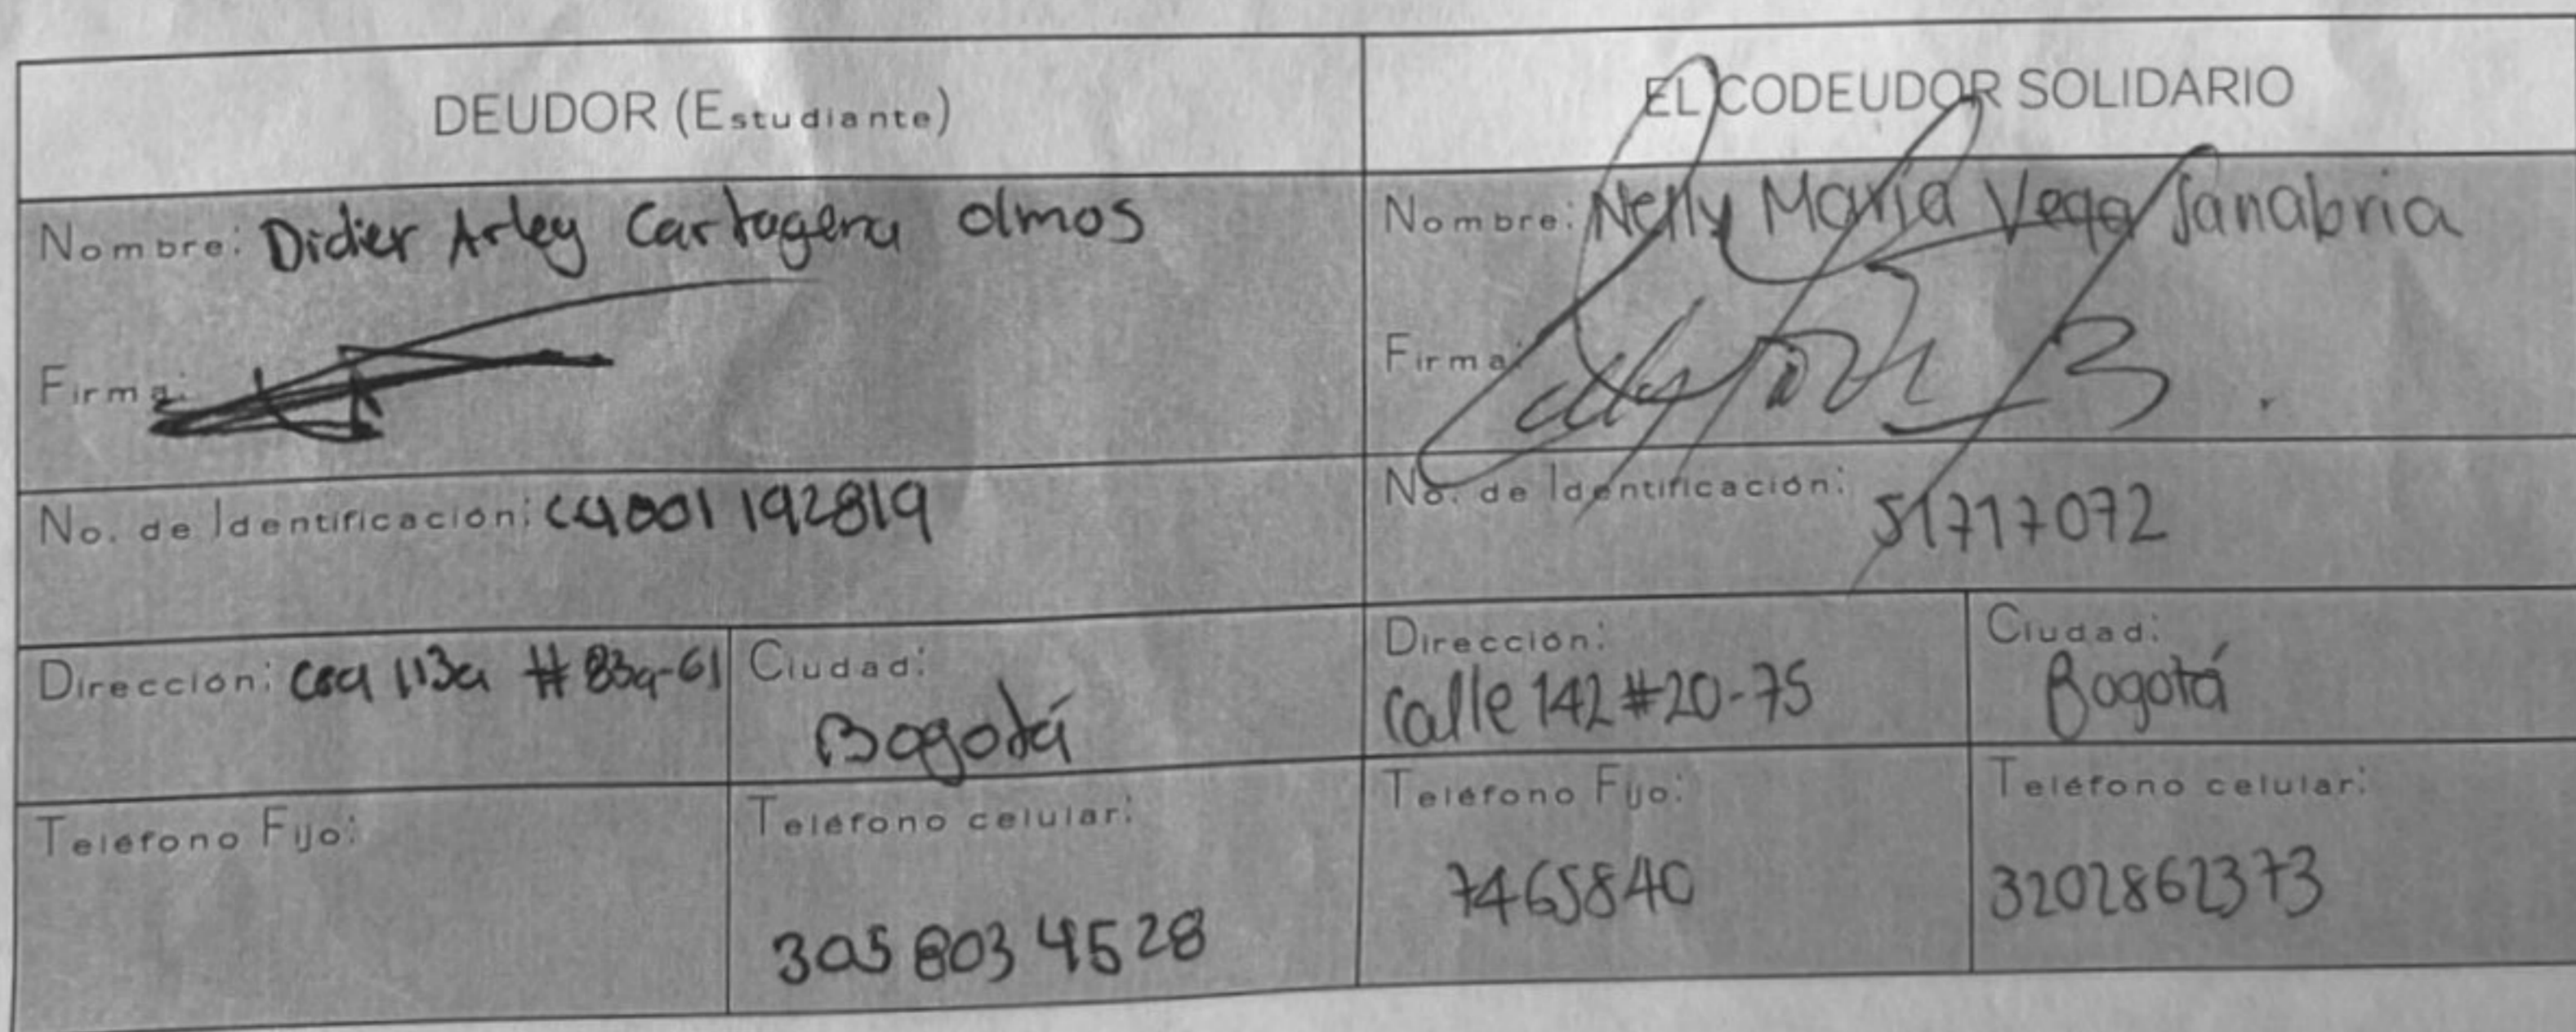 DEUDOR (Estudiante)
Nombre: Didier Arley Cartagena Olmos
Firma:
No. de Identificación: 1001192819
Dirección: cra 113a #83a-61
Ciudad: Bogotá
Teléfono Fijo:
Teléfono celular: 305 803 4528
EL CODEUDOR SOLIDARIO
Nombre: Nelly María Vega Sanabria
Firma:
No. de Identificación: 51717072
Dirección: Calle 142 #20-75
Ciudad: Bogotá
Teléfono Fijo: 7465840
Teléfono celular: 3202862373